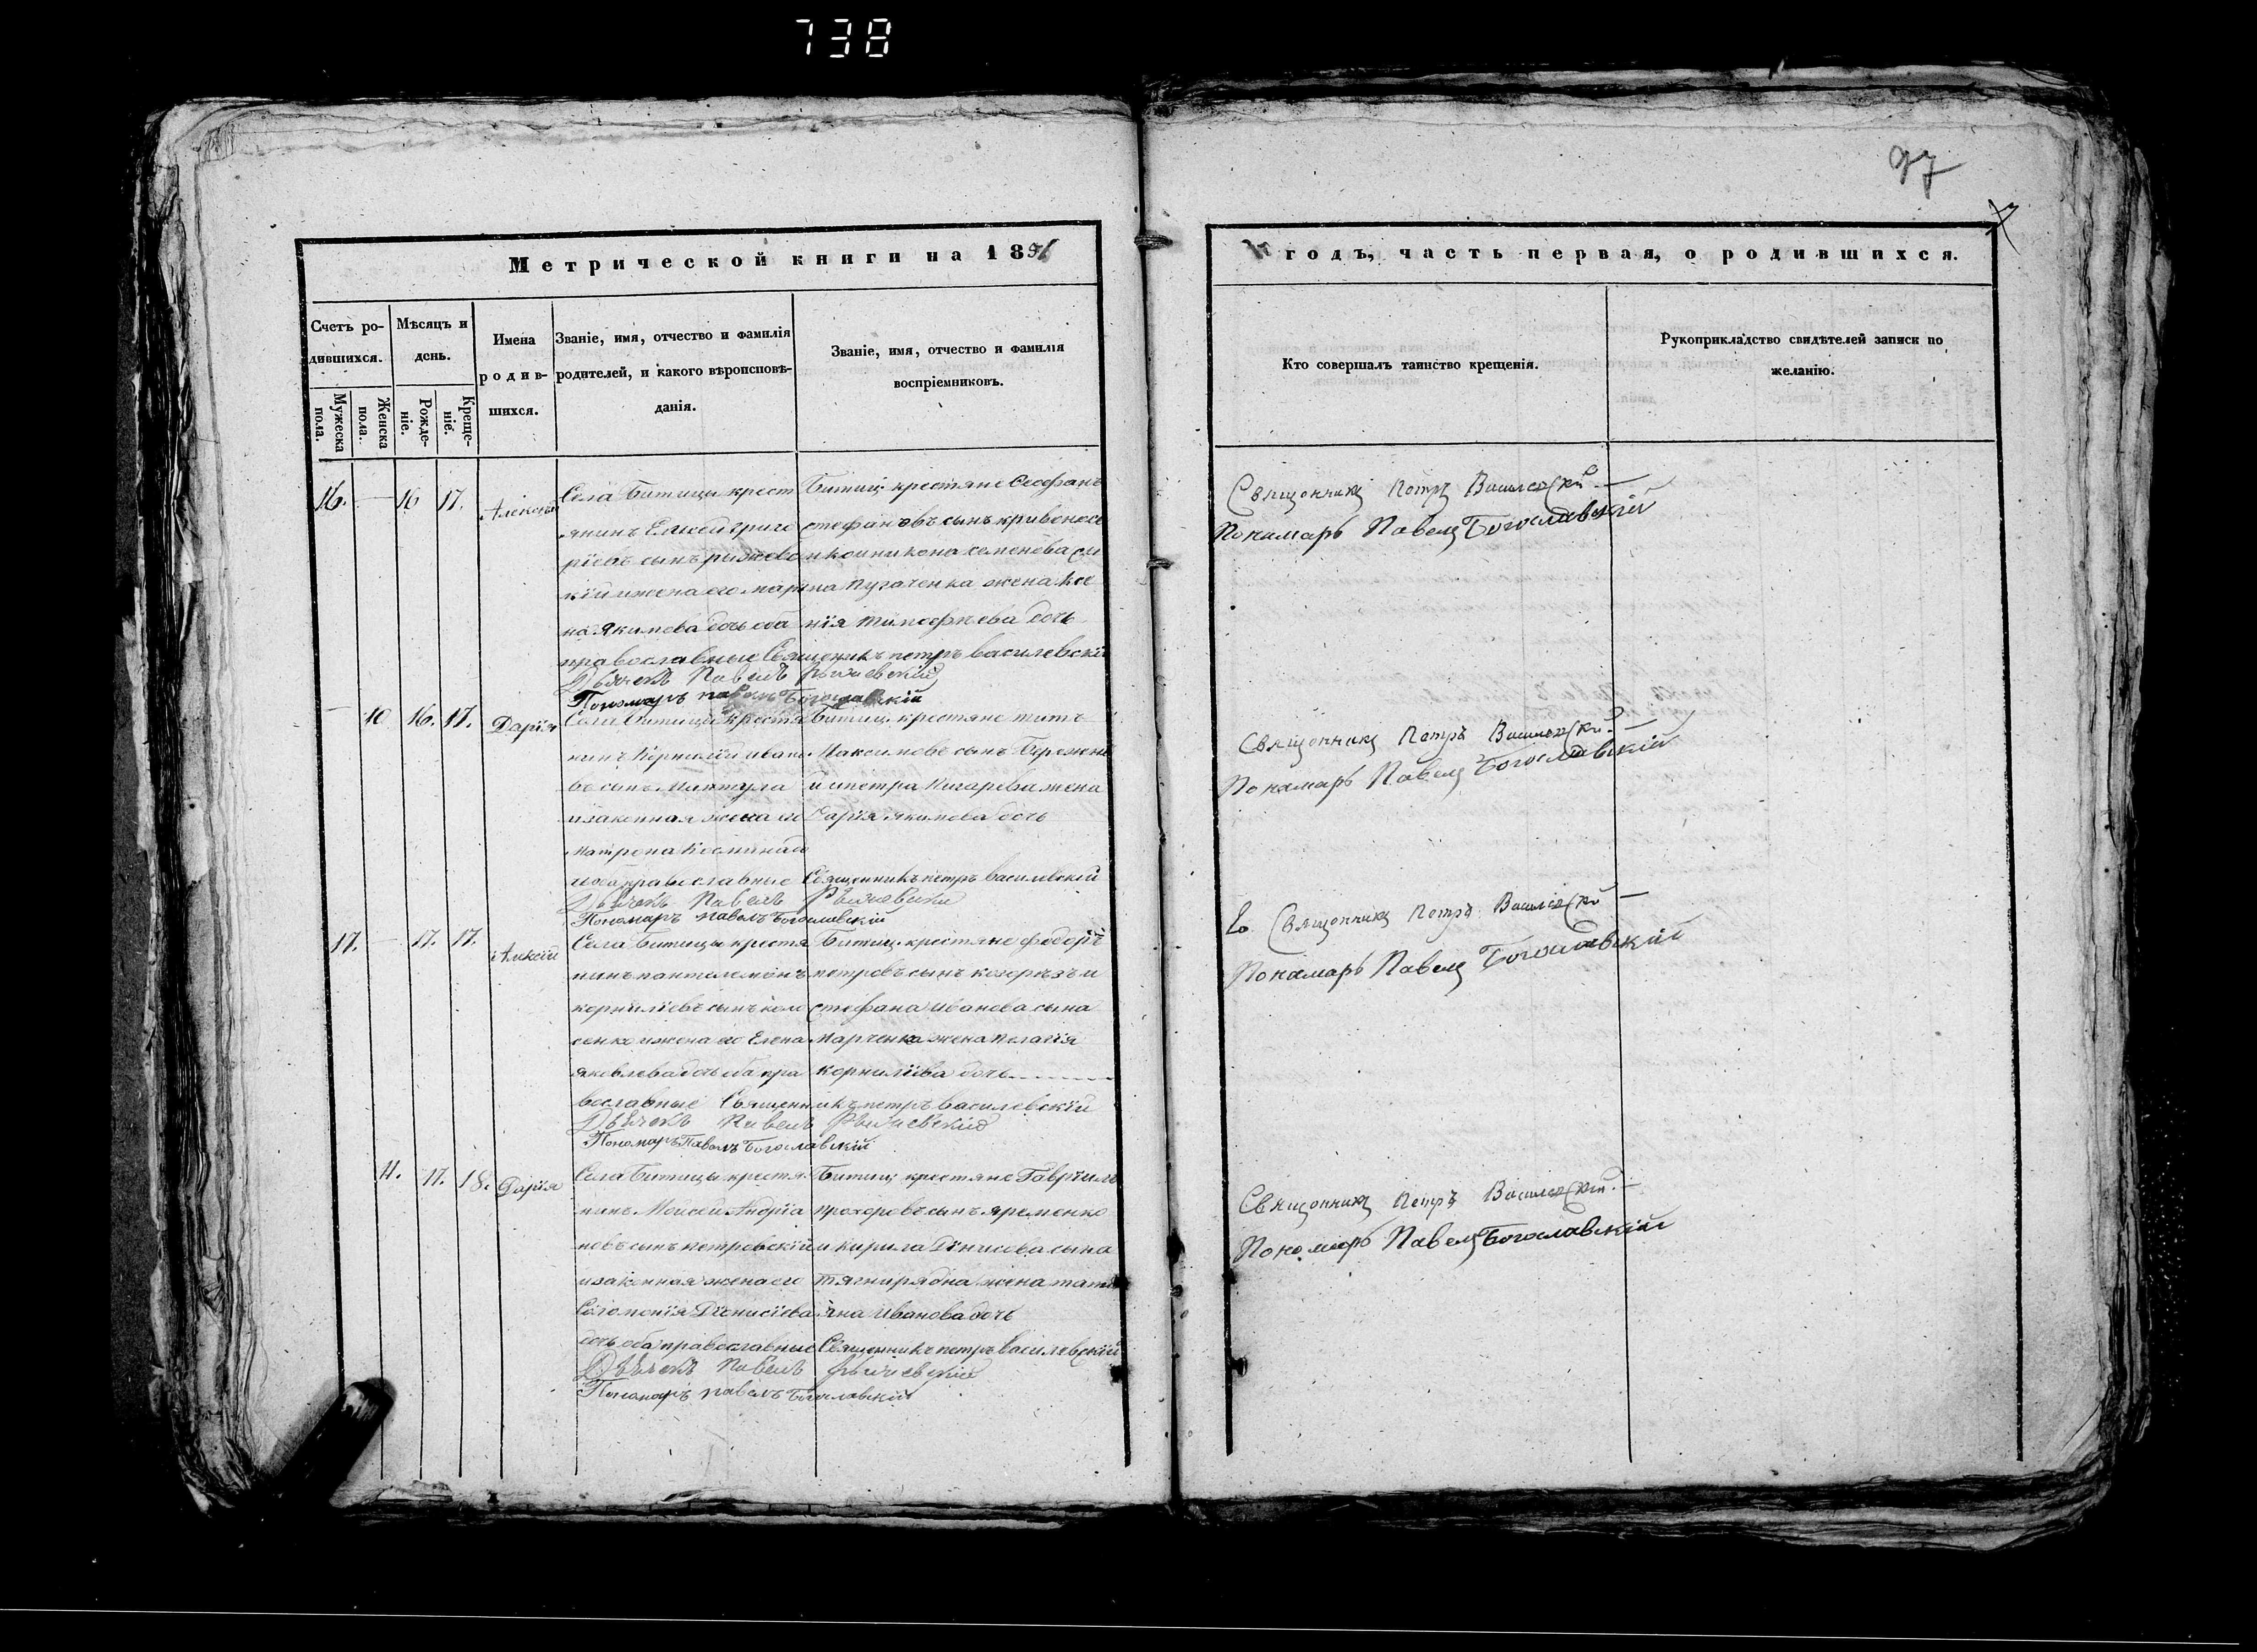 738
97
Метрической книги на 18
годъ, часть первая, о родившихся.
Счетъ ро-
дившихся.
Мужеска
пола.
Женска
пола.
Мѣсяцъ и
день.
Рожде-
ніе.
Креще-
ніе.
Имена
родив-
шихся.
Званіе, имя, отчество и фамилія
родителей, и какого вѣроисповѣ-
данія.
Званіе, имя, отчество и фамилія
воспріемниковъ.
Кто совершалъ таинство крещенія.
Рукоприкладство свидѣтелей записи по
желанію.
16. — 16 17. Алексѣй
Села Битицы крест
янинъ Елисей Григо
ріевъ сынъ
и жена его мари
на Якимова дочь оба
православные
Битиц крестяне Феофанъ
стефановъ сынъ кривонос
семенова
Пугаченка жена Ксе
нія тимофѣева дочь
Священикъ петръ василевскій
Дьячекъ Павелъ
Пономаръ павелъ Богославскій
Священникъ Петръ Василевскій. —
Пономарь Павелъ Богославскій
— 10 16. 17. Дарія
Села Битицы крестя
нинъ Корнилій ивано
въ сынъ
изаконная жена его
Матрона
православные
Битиц крестяне титъ
Максимовъ сынъ
и петра жена
Дарія якимова дочь
Священникъ петръ василевскій
Дьячекъ Павелъ
Пономаръ павелъ Богославскій
Священникъ Петръ Василевскій. —
Пономарь Павелъ Богославскій
17. — 17. 17. Алексій
Села Битицы крестя
нинъ пантелемонъ
корниліевъ сынъ кол
сенко и жена его Елена
яковлева дочь оба пра
вославные
Битиц крестяне феодоръ
петровъ сынъ козорѣзъ и
стефана Иванова сына
Марченка жена пелагія
корниліева дочь
Священникъ петръ василевскій
Дьячекъ Павелъ
Пономаръ Павелъ Богославскій
Священникъ Петръ Василевскій —
Пономарь Павелъ Богославскій
11. 17. 18. Дарія
Села Битицы крестя
нинъ Моисей Андріа
новъ сынъ петровскій
изаконная жена его
Соломонія Діонисіева
дочь оба православные
Битиц крестяне Гавріилъ
прохоровъ сынъ яременко
и кирила Дінисова сына
тягнирядна жена тати
яна Иванова дочь
Священникъ петръ василевскій
Дьячекъ Павелъ
Пономаръ павелъ Богославскій
Священникъ Петръ Василевскій. —
Пономарь Павелъ Богославскій